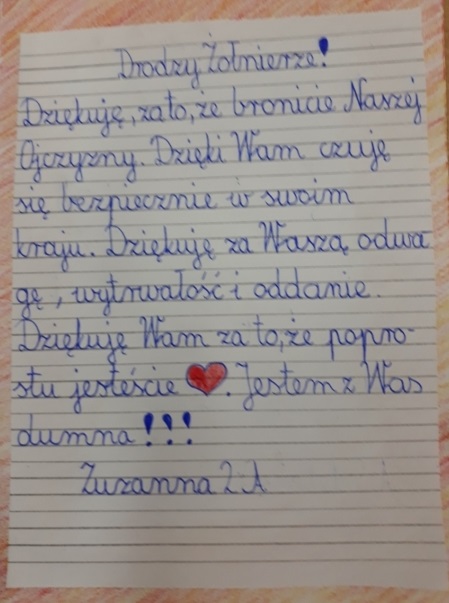 Drodzy Żołnierze!
Dziękuję, za to, że bronicie Naszej
Ojczyzny. Dzięki Wam czuję
się bezpiecznie w swoim
kraju. Dziękuję za Waszą odwa
gę, wytrwałość i oddanie.
Dziękuję Wam za to, że popro-
stu jesteście ❤. Jestem z Was
dumna!!!
Zuzanna 2 A